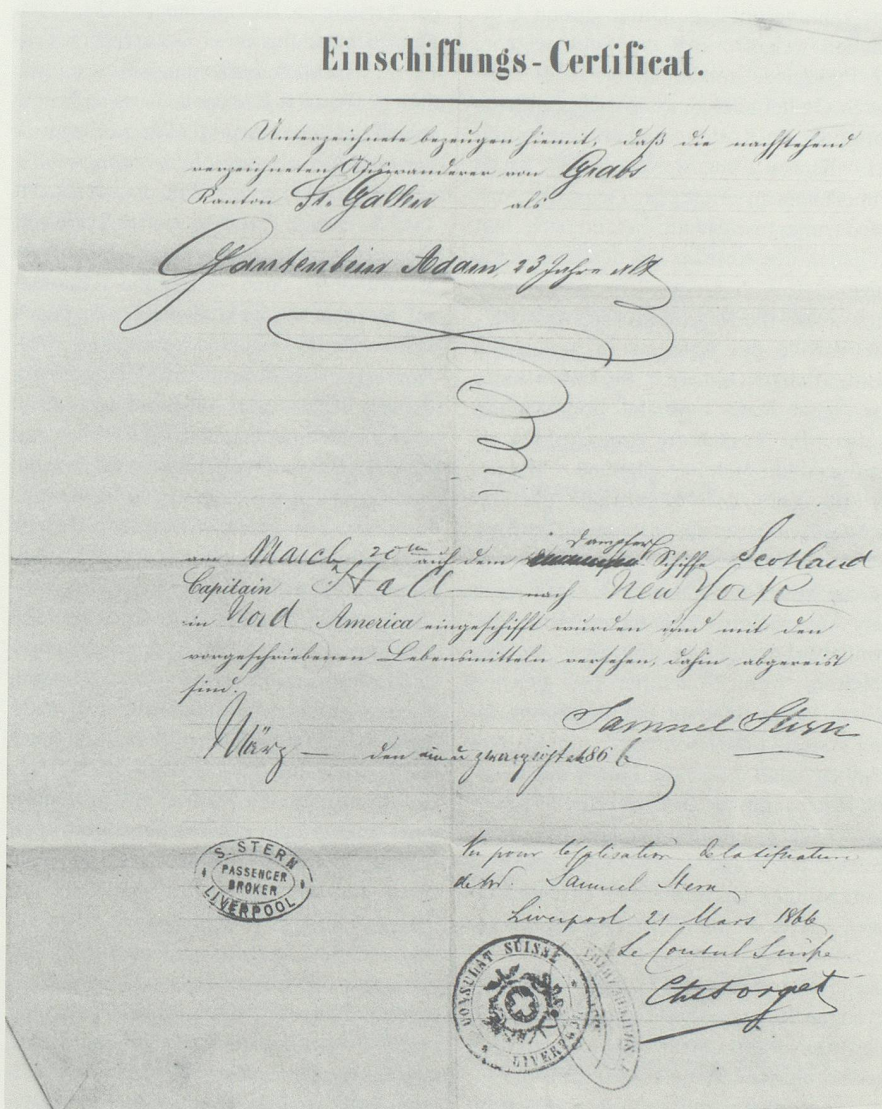 Einschiffungs-Certificat.
Unterzeichnete bezeugen hiemit, daß die nachstehend
verzeichneten Auswanderer von Grabs
Kanton St. Gallen als
Gantenbein Adam 23 Jahre alt
am March 20 auf dem Dampfer Schiffe Scotland
Capitain Hall nach New York
in Nord America eingeschifft wurden und mit den
vorgeschriebenen Lebensmitteln versehen, dahin abgereist
sind.
Samuel Stern
März den ein u zwanzigsten 1866
S. STERN
PASSENGER
BROKER
LIVERPOOL
Vu pour légalisation de la signature
de Mr. Samuel Stern
Liverpool 21 Mars 1866
Le Consul Suisse
CONSULAT SUISSE
LIVERPOOL